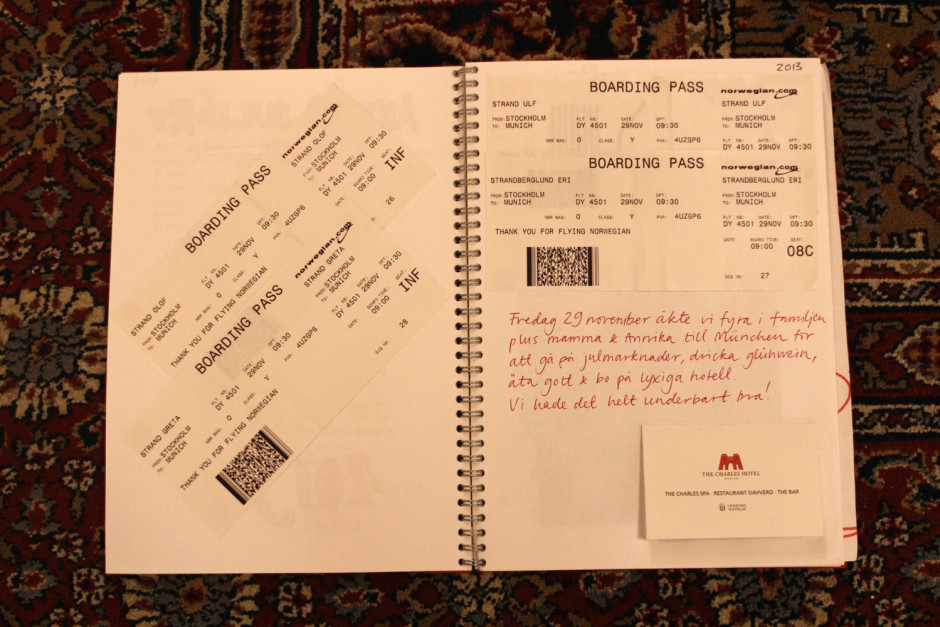 BOARDING PASS
norwegian.com
STRAND OLOF
FROM: STOCKHOLM
TO: MUNICH
FLT NR: DATE: DPT:
DY 4501 29NOV 09:30
NBR BAG: 0 CLASS: Y PNR: 4UZGP6
THANK YOU FOR FLYING NORWEGIAN
STRAND OLOF
FROM: STOCKHOLM
TO: MUNICH
FLT NR: DATE: DPT:
DY 4501 29NOV 09:30
GATE: BOARD TIME: SEAT:
09:00 INF
26
BOARDING PASS
norwegian.com
STRAND GRETA
FROM: STOCKHOLM
TO: MUNICH
DY 4501 29NOV 09:30
NBR BAG: 0 CLASS: Y PNR: 4UZGP6
THANK YOU FOR FLYING NORWEGIAN
STRAND GRETA
FROM: STOCKHOLM
TO: MUNICH
FLT NR: DATE: DPT:
DY 4501 29NOV 09:30
GATE: BOARD TIME: SEAT:
09:00 INF
SEQ NR: 28
2013
BOARDING PASS norwegian.com
STRAND ULF STRAND ULF
FROM: STOCKHOLM FLT NR: DATE: DPT: FROM: STOCKHOLM
TO: MUNICH DY 4501 29NOV 09:30 TO: MUNICH
FLT NR: DATE: DPT:
NBR BAG: 0 CLASS: Y PNR: 4UZGP6 DY 4501 29NOV 09:30
BOARDING PASS norwegian.com
STRANDBERGLUND ERI STRANDBERGLUND ERI
FROM: STOCKHOLM FLT NR: DATE: DPT: FROM: STOCKHOLM
TO: MUNICH DY 4501 29NOV 09:30 TO: MUNICH
FLT NR: DATE: DPT:
NBR BAG: 0 CLASS: Y PNR: 4UZGP6 DY 4501 29NOV 09:30
THANK YOU FOR FLYING NORWEGIAN
GATE: BOARD TIME: SEAT:
09:00 08C
SEQ NR: 27
Fredag 29 november åkte vi fyra i familjen
plus mamma & Annika till München för
att gå på julmarknader, dricka glühwein,
äta gott & bo på lyxiga hotell.
Vi hade det helt underbart bra!
THE CHARLES HOTEL
MUNICH
THE CHARLES SPA · RESTAURANT DAVVERO · THE BAR
LEADING
HOTELS